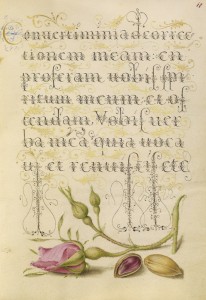 Convertimini ad correc
tionem meam en
proferam vobis spi
ritum meum et os
tendam vobis ver
ba mea quia voca
vi et renuistis ete